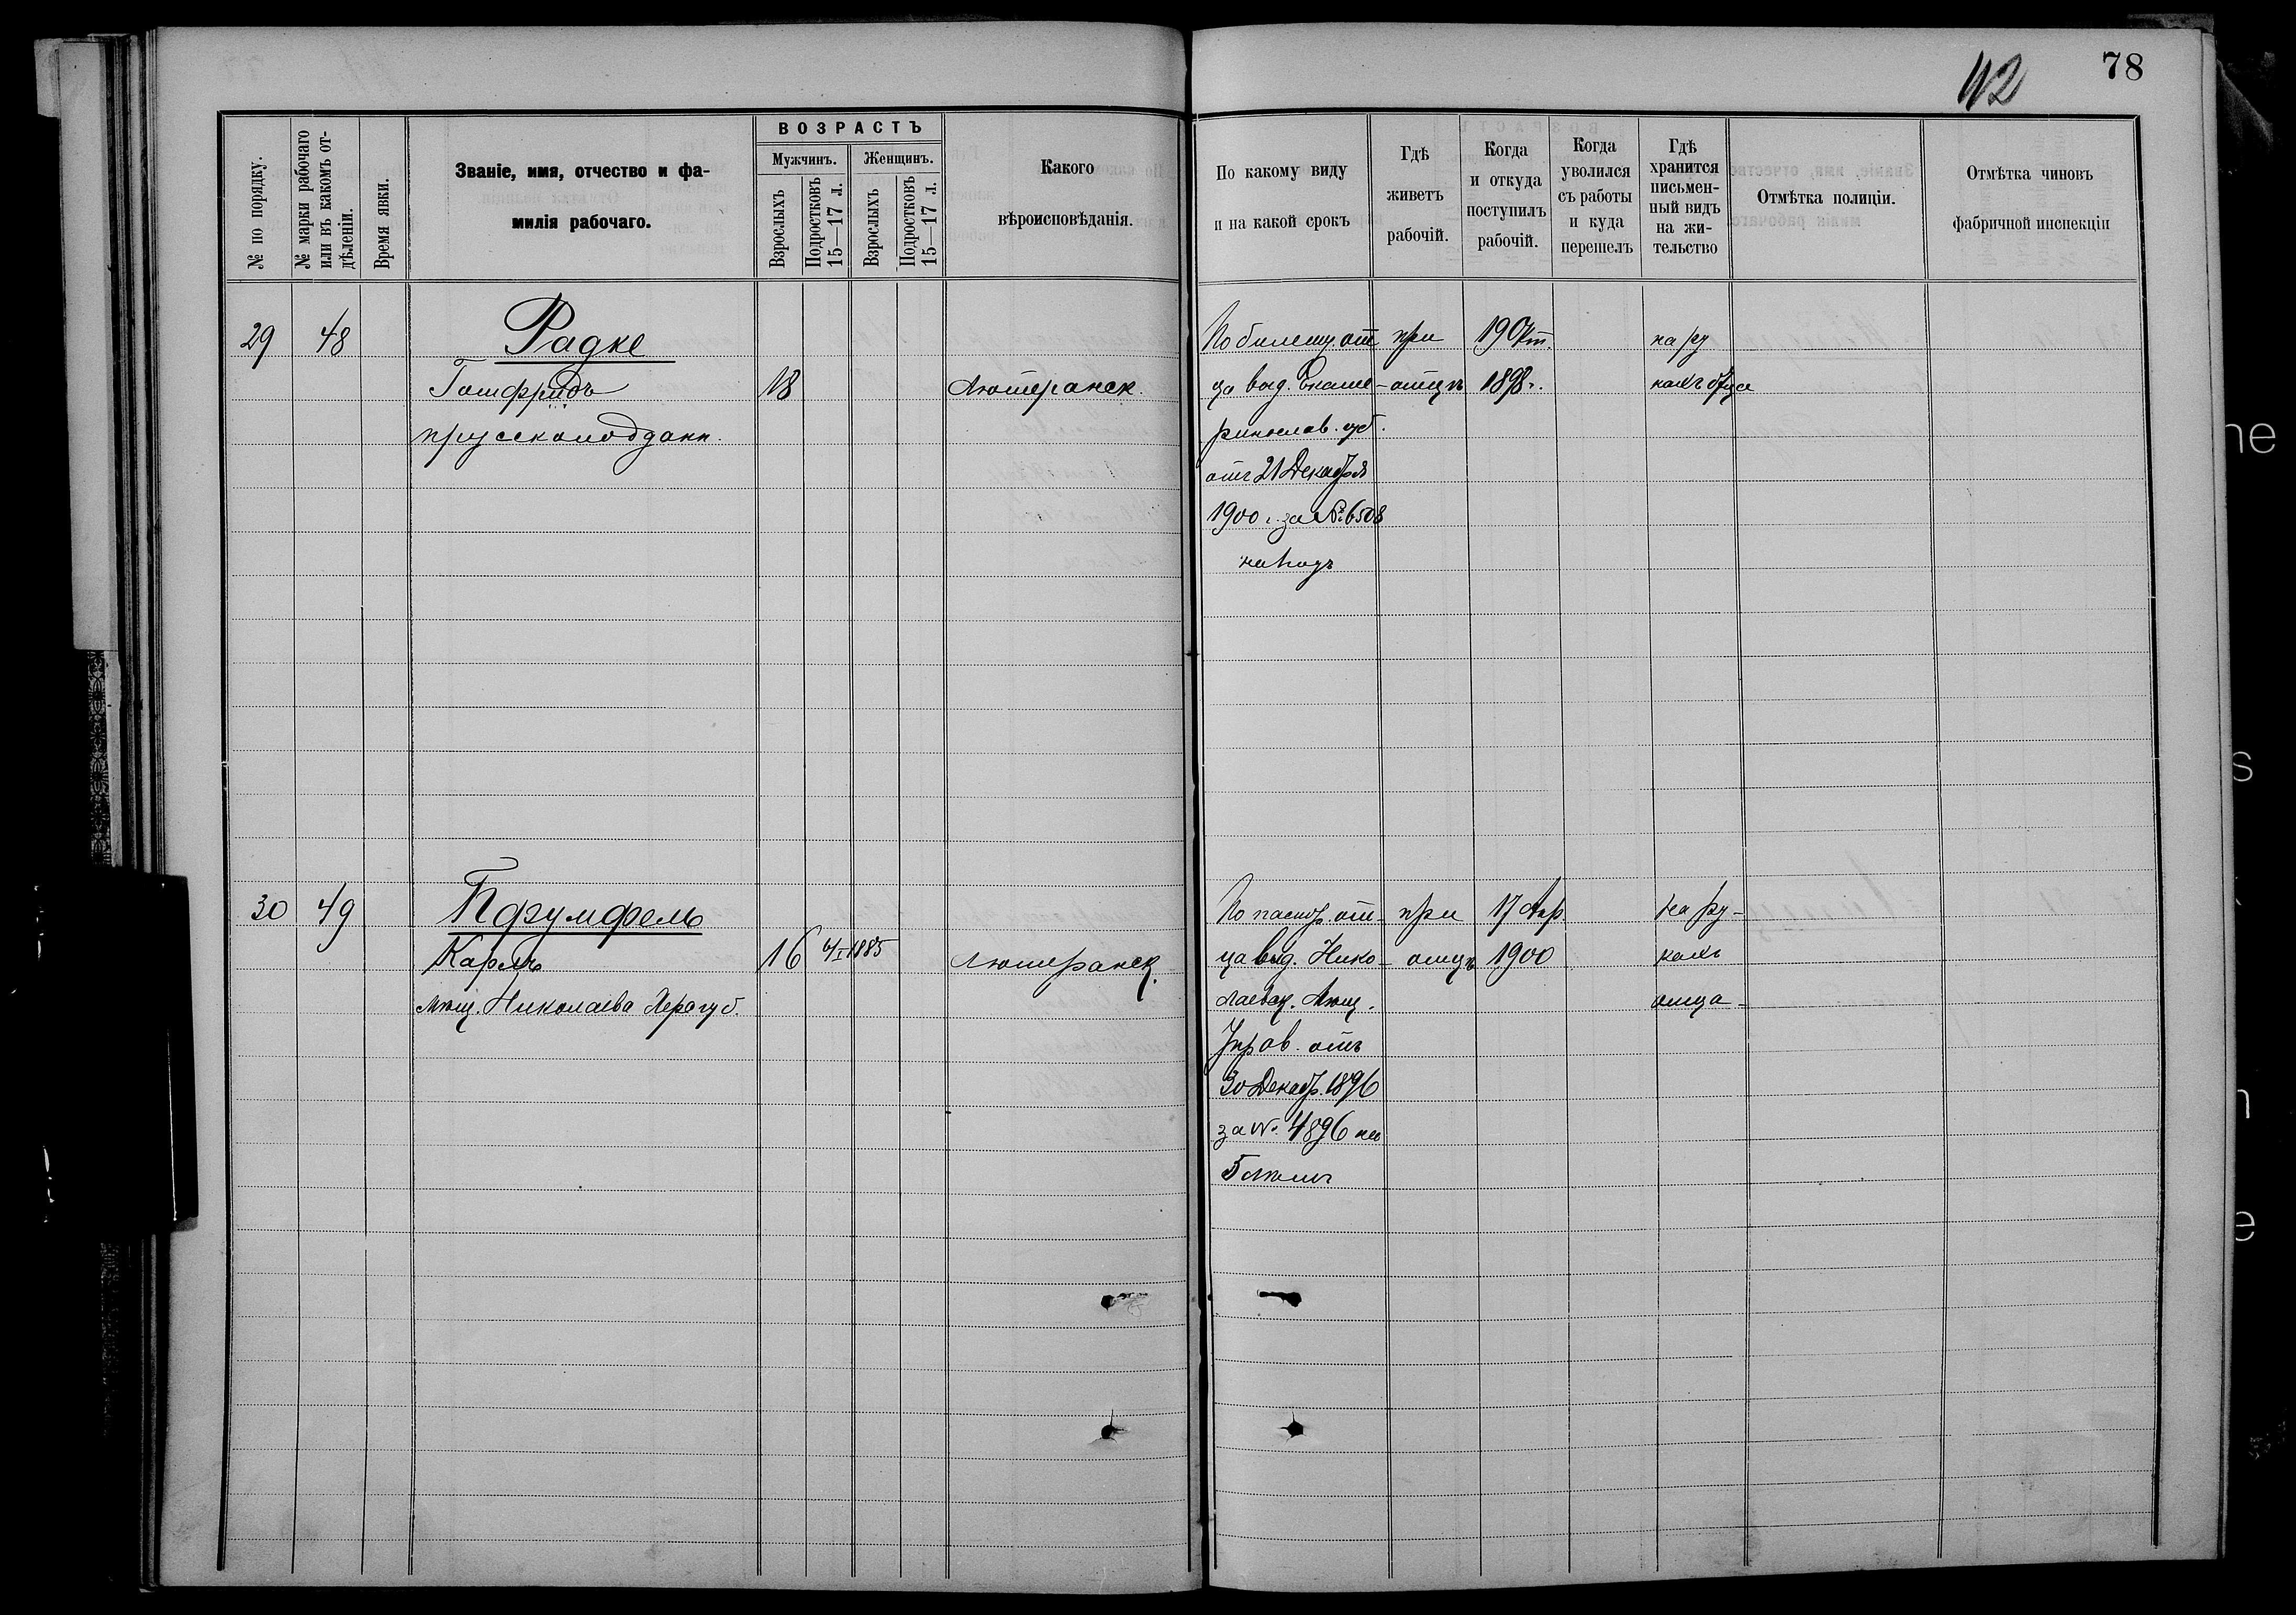 112
78
№ по порядку.
№ марки рабочаго или въ какомъ отдѣленіи.
Время явки.
Званіе, имя, отчество и фа-
милія рабочаго.
ВОЗРАСТЪ
Мужчинъ.
Женщинъ.
Взрослыхъ
Подростковъ 15—17 л.
Взрослыхъ
Подростковъ 15—17 л.
Какого
вѣроисповѣданія.
По какому виду
и на какой срокъ
Гдѣ
живетъ
рабочій.
Когда
и откуда
поступилъ
рабочій.
Когда
уволился
съ работы
и куда
перешелъ
Гдѣ
хранится
письмен-
ный видъ
на жи-
тельство
Отмѣтка полиціи.
Отмѣтка чиновъ
фабричной инспекціи
29 48
Радке
Готфридъ
прусскоподданн.
18
Лютеранск.
По билету от
ца выд. Екате-
ринослав. губ.
отъ 21 Декабря
1900 г. за № 6508
на 1 годъ
при
отцѣ
19 Окт.
1898 г.
на ру
кахъ отца
30 49
Карлъ
мѣщ. Николаева Хер. губ.
16 1885
Лютеранск.
По паспор. от-
ца выд. Нико-
лаевск. Мѣщ.
Управ. отъ
30 Декабр. 1896
за № 4896 на
5 лѣтъ
при
отцѣ
17 Апр
1900
на ру-
кахъ
отца